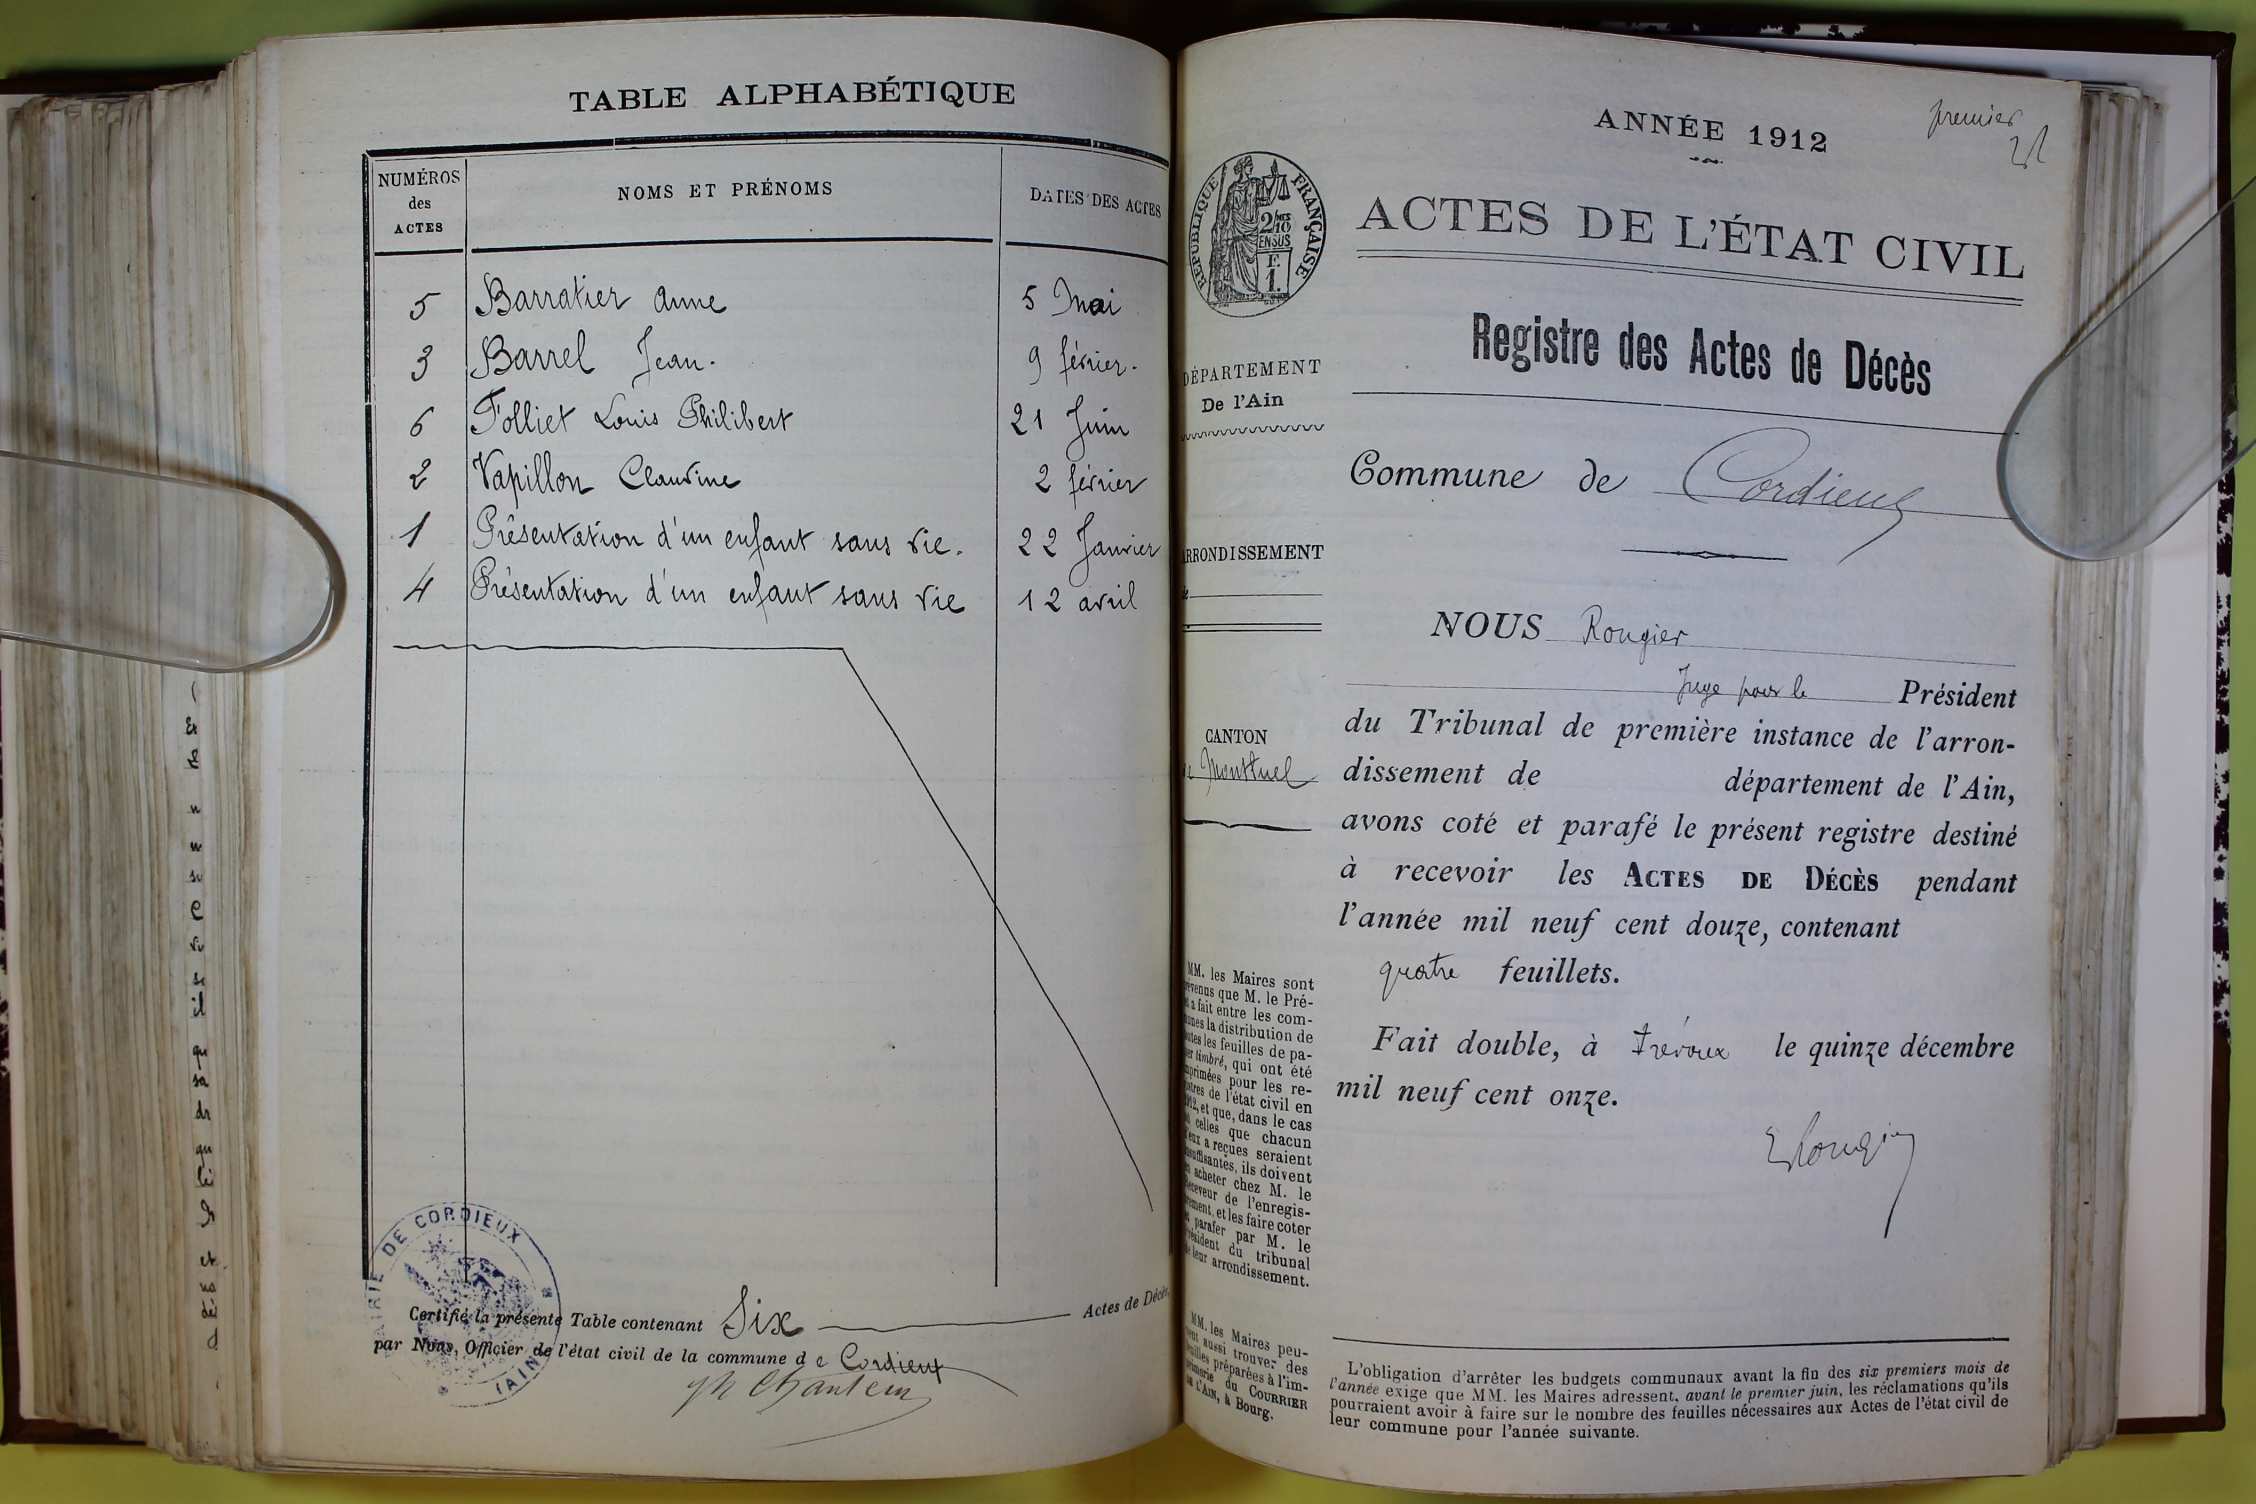 TABLE ALPHABÉTIQUE
NUMÉROS des ACTES
NOMS ET PRÉNOMS
DATES DES ACTES
5 Barratier Anne 5 Mai
3 Barrel Jean. 9 février.
6 Folliet Louis Philibert 21 Juin
2 Vapillon Claudine 2 février
1 Présentation d'un enfant sans vie. 22 Janvier
4 Présentation d'un enfant sans vie 12 avril
Certifié la présente Table contenant Six Actes de Décès,
par Nous, Officier de l'état civil de la commune de Cordieux
MAIRIE DE CORDIEUX
(AIN)
premier
ANNÉE 1912
ACTES DE L'ÉTAT CIVIL
Registre des Actes de Décès
Commune de Cordieux
NOUS Rougier
Juge pour le Président
du Tribunal de première instance de l'arron-
dissement de département de l'Ain,
avons coté et parafé le présent registre destiné
à recevoir les ACTES DE DÉCÈS pendant
l'année mil neuf cent douze, contenant
quatre feuillets.
Fait double, à Trévoux le quinze décembre
mil neuf cent onze.
Rougier
L'obligation d'arrêter les budgets communaux avant la fin des six premiers mois de
l'année exige que MM. les Maires adressent, avant le premier juin, les réclamations qu'ils
pourraient avoir à faire sur le nombre des feuilles nécessaires aux Actes de l'état civil de
leur commune pour l'année suivante.
RÉPUBLIQUE FRANÇAISE
2/10
EN SUS
F.
1.
DÉPARTEMENT
De l'Ain
ARRONDISSEMENT
CANTON
Montluel
MM. les Maires sont
prévenus que M. le Pré-
fet a fait entre les com-
munes la distribution de
toutes les feuilles de pa-
pier timbré, qui ont été
imprimées pour les re-
gistres de l'état civil en
1912, et que, dans le cas
où celles que chacun
d'eux a reçues seraient
insuffisantes, ils doivent
en acheter chez M. le
Receveur de l'enregis-
trement, et les faire coter
et parafer par M. le
Président du tribunal
de leur arrondissement.
MM. les Maires peu-
vent aussi trouver des
feuilles préparées à l'im-
primerie du COURRIER
DE L'AIN, à Bourg.